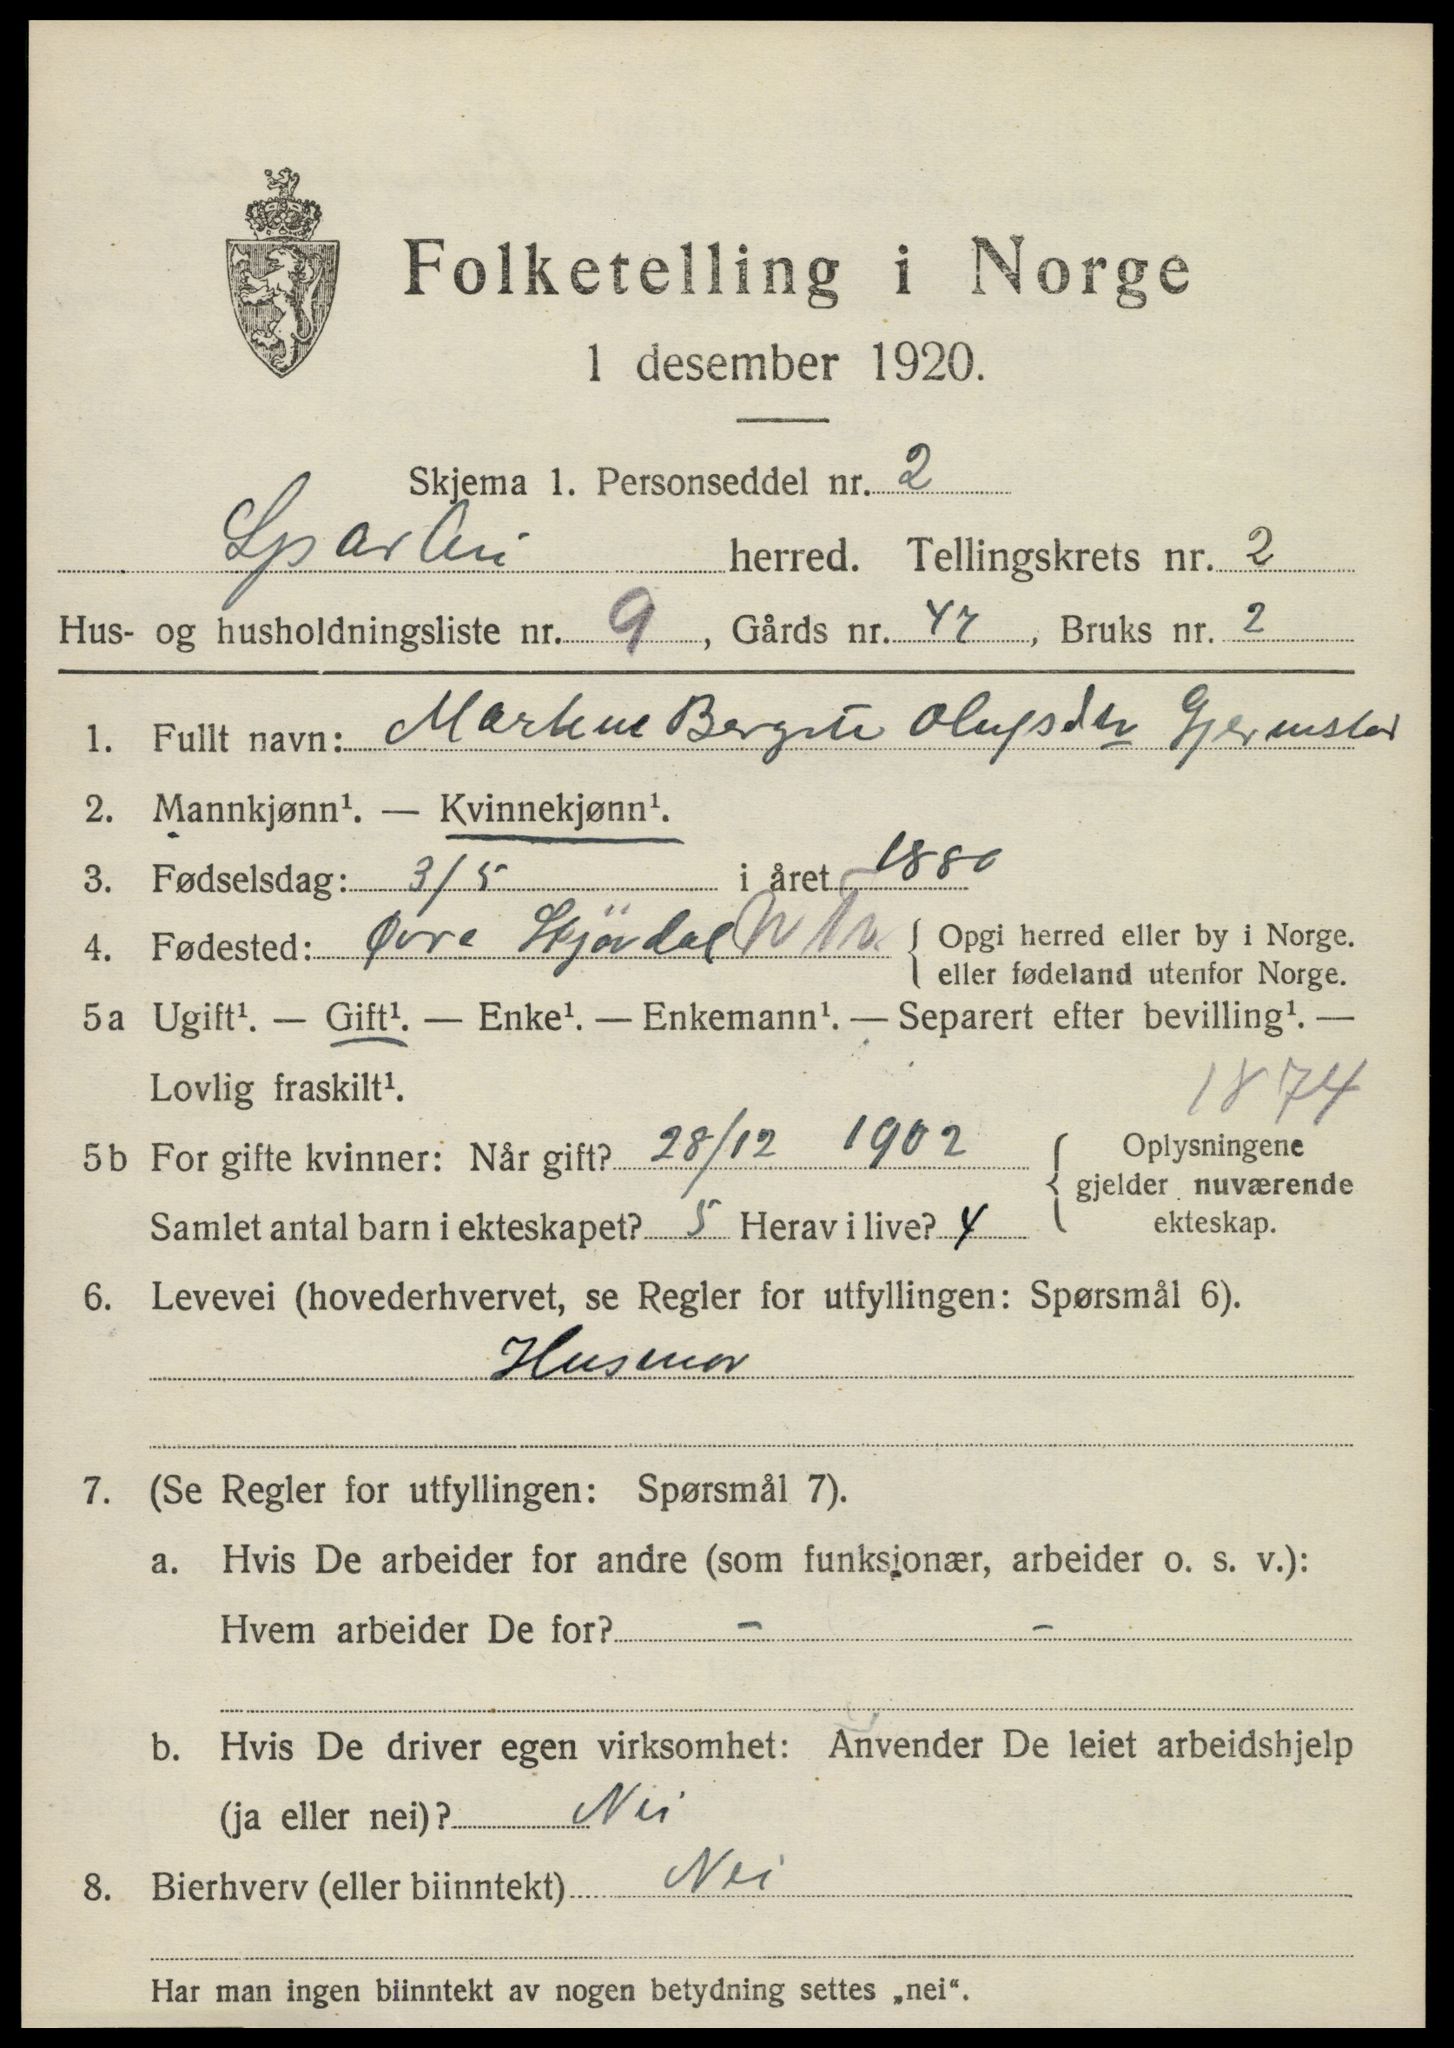 Folketelling i Norge
1 desember 1920.
Skjema 1. Personseddel nr. 2
Sparbu herred. Tellingskrets nr. 2
Hus- og husholdningsliste nr. 9, Gårds nr. 47, Bruks nr. 2
1. Fullt navn: Bergite Olufsdtr Gjermstad
2. Mannkjønn¹. — Kvinnekjønn¹.
3. Fødselsdag: 3/5 i året 1880
4. Fødested: Øvre Stjördal { Opgi herred eller by i Norge.
eller fødeland utenfor Norge.
5a Ugift¹. — Gift¹. — Enke¹. — Enkemann¹. — Separert efter bevilling¹. —
Lovlig fraskilt¹.
1874
5b For gifte kvinner: Når gift? 28/12 1902 { Oplysningene
gjelder nuværende
Samlet antal barn i ekteskapet? 5 Herav i live? 4 ekteskap.
6. Levevei (hovederhvervet, se Regler for utfyllingen: Spørsmål 6).
Husmor
7. (Se Regler for utfyllingen: Spørsmål 7).
a. Hvis De arbeider for andre (som funksjonær, arbeider o. s. v.):
Hvem arbeider De for? - -
b. Hvis De driver egen virksomhet: Anvender De leiet arbeidshjelp
(ja eller nei)? Nei
8. Bierhverv (eller biinntekt) Nei
Har man ingen biinntekt av nogen betydning settes „nei“.